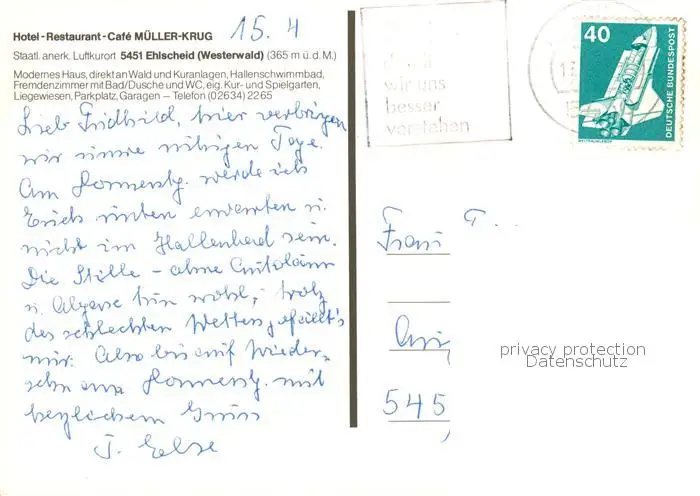 15. 4
Hotel-Restaurant-Café MÜLLER-KRUG
Staatl. anerk. Luftkurort 5451 Ehlscheid (Westerwald) (365 m ü. d. M.)
Modernes Haus, direkt an Wald und Kuranlagen, Hallenschwimmbad,
Fremdenzimmer mit Bad/Dusche und WC, eig. Kur- und Spielgarten,
Liegewiesen, Parkplatz, Garagen – Telefon (02634) 2265
Lieb Fridhild, hier verbringen
wir unsere ruhigen Tage.
Am Donnerstg. werde ich
Euch unten erwarten u.
nicht im Hallenbad sein.
Die Stille - ohne Autolärm
u. Abgase tun wohl, trotz
des schlechten Wetters, gefällt's
mir. Also bis auf Wieder-
sehn am Donnerstg. mit
herzlichem Gruss
T. Else
wir uns
besser
verstehen
40
DEUTSCHE BUNDESPOST
Frau T...
545
privacy protection
Datenschutz